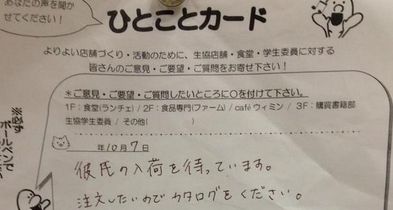 あなたの声を聞か
せてください!
ひとことカード
よりよい店舗づくり・活動のために、生協店舗・食堂・学生委員に対する
皆さんのご意見・ご要望・ご質問をお寄せ下さい!
*ご意見・ご要望・ご質問したいところに○を付けて下さい。
1F:食堂(ランチェ) / 2F:食品専門(ファーム) / caféウィミン / 3F:購買書籍部
生協学生委員 / その他( )
※必ず
ボールペンで
年10月7日
彼氏の入荷を待っています。
注文したいのでカタログをください。